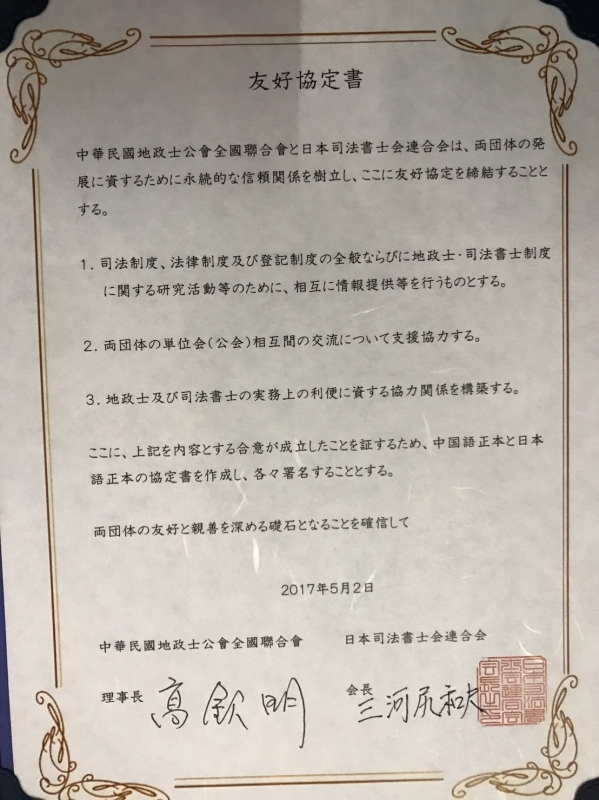 友好協定書
中華民國地政士公會全國聯合會と日本司法書士会連合会は、両団体の発
展に資するために永続的な信頼関係を樹立し、ここに友好協定を締結することと
する。
1. 司法制度、法律制度及び登記制度の全般ならびに地政士・司法書士制度
に関する研究活動等のために、相互に情報提供等を行うものとする。
2. 両団体の単位会(公会)相互間の交流について支援協力する。
3. 地政士及び司法書士の実務上の利便に資する協力関係を構築する。
ここに、上記を内容とする合意が成立したことを証するため、中国語正本と日本
語正本の協定書を作成し、各々署名することとする。
両団体の友好と親善を深める礎石となることを確信して
2017年5月2日
中華民國地政士公會全國聯合會 日本司法書士会連合会
理事長 高欽明 会長 三河尻和夫